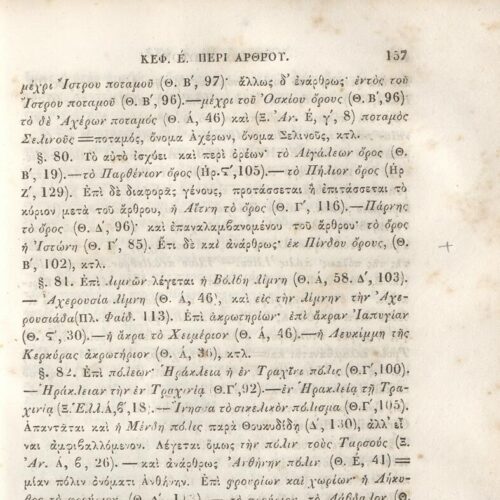 ΚΕΦ. Ε΄. ΠΕΡΙ ΑΡΘΡΟΥ. 157
μέχρι Ἴστρου ποταμοῦ (Θ. Β΄, 97)· ἄλλως δ' ἐνάρθρως· ἐντὸς τοῦ
Ἴστρου ποταμοῦ (Θ. Β΄, 96).—μέχρι τοῦ Ὀσκίου ὄρους (Θ. Β΄, 96)
τὸ δὲ Ἀχέρων ποταμὸς (Θ. Ά, 46) καὶ (Ξ. Ἀν. Ε, γ΄, 8) ποταμὸς
Σελινοῦς=ποταμός, ὄνομα Ἀχέρων, ὄνομα Σελινοῦς, κτλ.
§. 80. Τὸ αὐτὸ ἰσχύει καὶ περὶ ὀρέων· τὸ Αἰγάλεων ὄρος (Θ.
Β΄, 19).—τὸ Παρθένιον ὄρος (Ἡρ. ϛ΄, 105).—τὸ Πήλιον ὄρος (Ἡρ
Ζ΄, 129). Ἐπὶ δὲ διαφορᾶς γένους, προτάσσεται ἢ ἐπιτάσσεται τὸ
κύριον μετὰ τοῦ ἄρθρου, ἡ Αἴτνη τὸ ὄρος (Θ. Γ΄, 116).—Πάρνης
τὸ ὄρος (Θ. Δ΄, 96)· καὶ ἐπαναλαμβανομένου τοῦ ἄρθρου· τὸ ὄρος
ἡ Ἰστώνη (Θ. Γ΄, 85). Ἔτι δὲ καὶ ἀνάρθρως· ἐκ Πίνδου ὄρους, (Θ.
Β΄, 102), κτλ.
§. 81. Ἐπὶ λιμνῶν λέγεται ἡ Βόλβη λίμνη (Θ. Ά, 58. Δ΄, 103).
— Ἀχερουσία λίμνη (Θ. Ά, 46), καὶ εἰς τὴν λίμνην τὴν Ἀχε-
ρουσιάδα (Πλ. Φαίδ. 113). Ἐπὶ ἀκρωτηρίων· ἐπὶ ἄκραν Ἰαπυγίαν
(Θ. ϛ΄, 30).—ἡ ἄκρα τὸ Χειμέριον (Θ. Ά, 46).—ἡ Λευκίμμη τῆς
Κερκύρας ἀκρωτήριον (Θ. Ά, 30), κτλ.
§. 82. Ἐπὶ πόλεων· Ἡράκλεια ἡ ἐν Τραχῖνι πόλις (Θ. Γ΄, 100).
—Ἡράκλειαν τὴν ἐν Τραχινίᾳ (Θ. Γ΄, 92).—ἐν Ἡρακλείᾳ τῇ Τρα-
χινίᾳ (Ξ. Ἑλλ. Ά, β΄, 18).—Ἴνησσα τὸ σικελικὸν πόλισμα (Θ. Γ΄, 105).
Ἀπαντᾶται καὶ ἡ Μένδη πόλις παρὰ Θουκυδίδῃ (Δ΄, 130), ἀλλ' εἶ
ναι ἀμφιβαλλόμενον. Λέγεται ὅμως τὴν πόλιν τοὺς Ταρσοὺς (Ξ.
Ἀν. Ά, β, 26).—καὶ ἀνάρθρως Ἀνθήνην πόλιν (Θ. Ε, 41)=
μίαν πόλιν ὀνόματι Ἀνθήνην. Ἐπὶ φρουρίων καὶ χωρίων· ἡ Λήκυ-